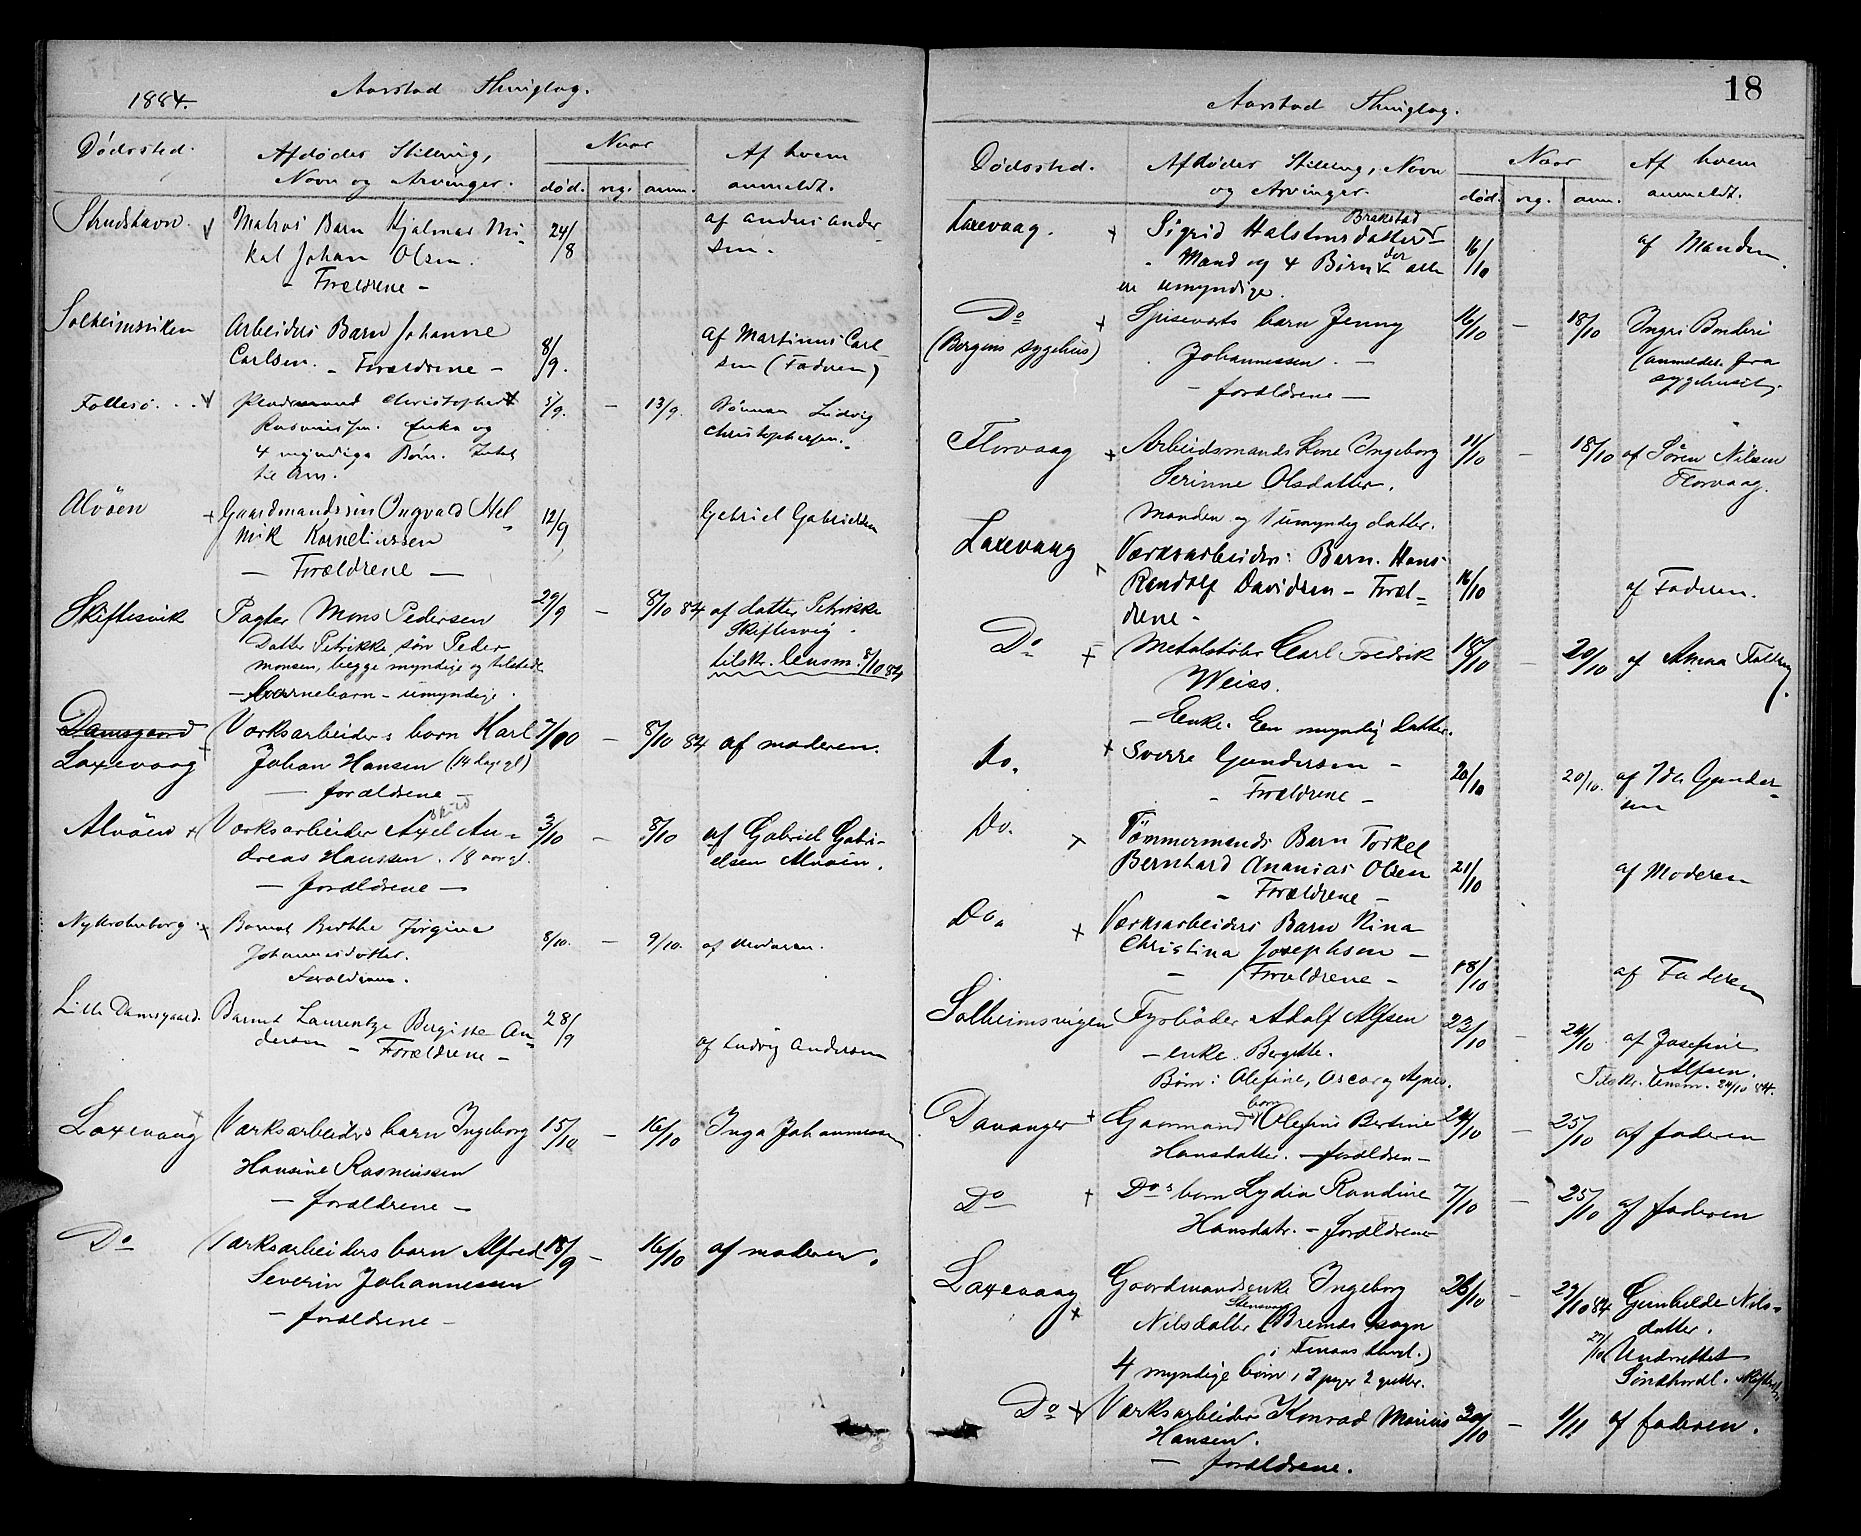 1884.
Aarstad Thinglag.
Dødssted.
Afdødes Stilling,
Navn og Arvinger.
Naar
død.
reg.
anm.
Af hvem
anmeldt.
Matros Barn Hjalmar Mi-
kal Johan Olsen.
- Forældrene -
24/8
af Anders Ander-
sen.
Solheimsviken
Arbeiders Barn Johanne
Carlsen. - Forældrene -
8/9.
af Martinus Carl
sen (Faderen)
Follesø
Christopher
Rasmussen. Enke og
4 myndige Børn.
5/9.
-
13/9.
Sønnen Ludvig
Christophersen.
Alvøen
+ Gaardmandssøn Ingvald Hel-
mik Korneliussen
- Forældrene -
12/9
Gabriel Gabrielsen
Skiftesvik
Pagter Mons Pedersen
Datter Petrikke, søn Peder
Monsen, begge myndige og tilstede
- Barnebarn - umyndige.
29/9
-
8/10 84
af datter Petrikke
Skiftesvig.
tilskr. lensm. 8/10 84
Damsgaard
Laxevaag
+
Værksarbeiders barn Karl
Johan Hansen (14 dage gl)
- forældrene -
7/10
-
8/10 84
af moderen.
Alvöen +
Værksarbeider Axel An-
dreas Hanssen. 18 aar gl.
- forældrene -
3/10
-
8/10
af Gabriel Gabri-
elsen Alvøen.
Barnet Berthe Jørgine
Johannesdatter.
Forældrene.
8/10.
-
9/10.
af Moderen.
Lille Damsgaard.
Barnet Laurentze Bergitte An-
dersen - Forældrene -
28/9
af Ludvig Andersen
Laxevaag
+
Værksarbeiders barn Ingeborg
Hansine Rasmussen
- forældrene -
15/10
-
16/10
Inga Johannessen
Do
Værksarbeiders barn Alfred
Severin Johannessen
- forældrene -
18/9
-
16/10
af moderen.
18
Aarstad Thinglag.
Dødssted.
Afdødes Stilling, Navn
og Arvinger.
Naar
død.
reg.
anm.
Af hvem
anmeldt.
Laxevaag.
+
Brakstad
Sigrid Halstensdatter
Mand og 4 Børn der alle
er umyndige.
16/10
af Manden.
Do
(Bergens sygehus)
+
Spiseværts barn Jenny
Johannessen. -
- forældrene -
16/10
-
18/10
Ingri Bonderi
(anmeldes fra
sygehuset)
Florvaag
+
Arbeidsmands Kone Ingeborg
Serinne Olsdatter.
Manden og 1 umyndig datter.
11/10
-
18/10
af Søren Nilsen
Florvaag.
Laxevaag
Værksarbeiders Barn. Hans
Randolf Davidsen - Foræl-
drene -
16/10
af Faderen.
Do
+
Metalstøber Carl Fredrik
Weiss.
- Enke. Een myndig Datter.
18/10
-
20/10
Do.
+
Sverre Gundersen -
- Forældrene -
20/10
20/10.
af Ida Gunder-
sen
Do.
+
Tömmermands Barn Torkel
Bernhard Ananias Olsen
- Forældrene -
21/10
af Moderen
Do.
+
Værksarbeiders Barn Nina
Christina Josephsen -
- Forældrene -
18/10
af Faderen
Solheimsvigen
Fyrbøder Adolf Alfsen
- enke. Bergitte.
Børn: Olefine, Oscar og Agnes.
23/10
-
24/10
af Josefine
Alfsen.
Tilskr. lensm. 24/10 84.
Davanger
+
Gaarmand barn Olefine Bertine
Hansdatter. - forældren -
24/10
-
25/10
af faderen
Do
+
Dos barn Lydia Randine
Hansdatr. - forældrene
7/10
-
25/10
af faderen
Laxevaag
+
Gaardmandsenke Ingeborg
Nilsdatter (Bremes sogn
i Finaas
4 myndige børn, 2 piger 2 gutter.
26/10
-
29/10 84
Gunhilde Nils-
datter.
Underrettet
Do +
Værksarbeider Konrad Marius
Hansen.
- forældrene.
30/10
-
1/11
af faderen.